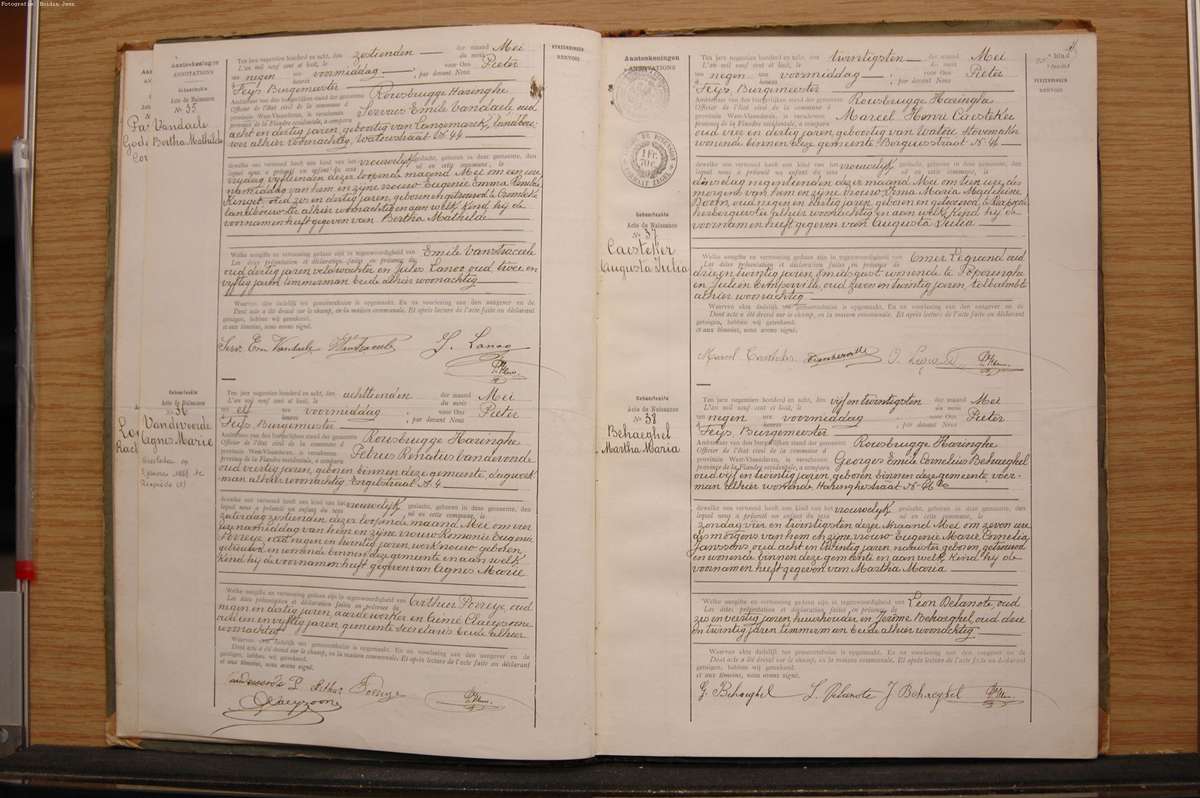 Fotografie: Boidin Jens
Aanteekeningen
ANNOTATIONS
Geboorteakte
Acte de Naissance
N. 35
Vandaele
Bertha Mathilda
VERZENDINGEN
RENVOIS
Ten jare negentien honderd en acht, den zestienden der maand Mei
L'an mil neuf cent et huit, le du mois
ten negen ure voormiddag voor Ons Pieter
heures ; par devant Nous
Feys Burgemeester
Ambtenaar van den burgerlijken stand der gemeente Rousbrugge Haringhe
Officier de l'état civil de la commune d
provincie West-Vlaanderen, is verschenen Servaes Emile Vandaele oud
province de la Flandre occidentale, a comparu
acht en dertig jaren, geboortig van Langemarck, landbou-
wer alhier woonachtig, Waterstraat N. 44
dewelke ons vertoond heeft een kind van het vrouwelijk geslacht, geboren in deze gemeente, den
lequel nous a présenté un enfant du sexe né en cette commune, le
vrijdag vijftienden dezer loopende maand Mei om een ure
namiddag van hem en zijne vrouw Eugenie Emma
oud zes en dertig jaren, geboren en getrouwd te
landbouwster alhier woonachtig en aan welk kind hij de
voornamen heeft gegeven van Bertha Mathilda
Welke aangifte en vertooning gedaan zijn in tegenwoordigheid van Emile Vanstraceele
Les dites présentation et déclaration faites en présence de
oud dertig jaren veldwachter en Jules Lanoo oud twee en
vijftig jaren timmerman beide alhier woonachtig
Waarvan akte dadelijk ten gemeentenhuize is opgemaakt. En na voorlezing aan den aangever en de
Dont acte a été dressé sur le champ, en la maison communale. Et après lecture de l'acte faite au déclarant
getuigen, hebben wij geteekend.
et aux témoins, nous avons signé.
Serv. Em Vandaele J. Lanoo
Geboorteakte
Acte de Naissance
N. 36
Vandevoorde
Agnes Marie
Ten jare negentien honderd en acht, den achttienden der maand Mei
L'an mil neuf cent et huit, le du mois
ten elf ure voormiddag voor Ons Pieter
heures ; par devant Nous
Feys Burgemeester
Ambtenaar van den burgerlijken stand der gemeente Rousbrugge Haringhe
Officier de l'état civil de la commune d
provincie West-Vlaanderen, is verschenen Petrus Renatus Vandevoorde
province de la Flandre occidentale, a comparu
oud veertig jaren, geboren binnen deze gemeente, dagwerk-
man alhier woonachtig Engelstraat N. 4
dewelke ons vertoond heeft een kind van het vrouwelijk geslacht, geboren in deze gemeente, den
lequel nous a présenté un enfant du sexe né en cette commune, le
zaturdag zestienden dezer loopende maand Mei om vier
ure namiddag van hem en zijne vrouw Romanie Eugenie
Povreye, oud negen en twintig jaren, werkvrouw geboren
getrouwd en wonende binnen deze gemeente en aan welk
kind hij de voornamen heeft gegeven van Agnes Marie
Welke aangifte en vertooning gedaan zijn in tegenwoordigheid van Arthur Povreye, oud
Les dites présentation et déclaration faites en présence de
negen en dertig jaren, aardewerker en Aimé Claeysoone
oud een en vijftig jaren gemeente secretaris beide alhier
woonachtig
Waarvan akte dadelijk ten gemeentenhuize is opgemaakt. En na voorlezing aan den aangever en de
Dont acte a été dressé sur le champ, en la maison communale. Et après lecture de l'acte faite au déclarant
getuigen, hebben wij geteekend.
et aux témoins, nous avons signé.
Vandevoorde P Arthur Povreye
Claeysoone
Aanteekeningen
ANNOTATIONS
1 Fr.
Geboorteakte
Acte de Naissance
N. 37
Caesteker
Augusta Julia
VERZENDINGEN
RENVOIS
Ten jare negentien honderd en acht, den twintigsten der maand Mei
L'an mil neuf cent et huit, le du mois
ten negen ure voormiddag voor Ons Pieter
heures ; par devant Nous
Feys Burgemeester
Ambtenaar van den burgerlijken stand der gemeente Rousbrugge Haringhe
Officier de l'état civil de la commune d
provincie West-Vlaanderen, is verschenen Marcel Henri Caesteker
province de la Flandre occidentale, a comparu
oud vier en dertig jaren, geboortig van Watou
wonende binnen deze gemeente Bergusstraat N. 46
dewelke ons vertoond heeft een kind van het vrouwelijk geslacht, geboren in deze gemeente, den
lequel nous a présenté un enfant du sexe né en cette commune, le
dinsdag negentienden dezer maand Mei om tien ure des
morgens van hem en zijne vrouw Irma Maria Magdalena
oud negen en dertig jaren, geboren en getrouwd te
herbergierster alhier woonachtig en aan welk kind hij de
voornamen heeft gegeven van Augusta Julia
Welke aangifte en vertooning gedaan zijn in tegenwoordigheid van Omer Legrand oud
Les dites présentation et déclaration faites en présence de
drie en twintig jaren, smidsgast wonende te Poperinghe
en Julien oud zeven en twintig jaren,
alhier woonachtig
Waarvan akte dadelijk ten gemeentenhuize is opgemaakt. En na voorlezing aan den aangever en de
Dont acte a été dressé sur le champ, en la maison communale. Et après lecture de l'acte faite au déclarant
getuigen, hebben wij geteekend.
et aux témoins, nous avons signé.
Marcel Caesteker
Geboorteakte
Acte de Naissance
N. 38
Behaeghel
Martha Maria
Ten jare negentien honderd en acht, den vijf en twintigsten der maand Mei
L'an mil neuf cent et huit, le du mois
ten negen ure voormiddag voor Ons Pieter
heures ; par devant Nous
Feys Burgemeester
Ambtenaar van den burgerlijken stand der gemeente Rousbrugge Haringhe
Officier de l'état civil de la commune d
provincie West-Vlaanderen, is verschenen Georges Emile Cornelius Behaeghel
province de la Flandre occidentale, a comparu
oud vijf en twintig jaren, geboren binnen deze gemeente, voer-
man alhier wonende Haringhestraat N. 46
dewelke ons vertoond heeft een kind van het vrouwelijk geslacht, geboren in deze gemeente, den
lequel nous a présenté un enfant du sexe né en cette commune, le
zondag vier en twintigsten dezer maand Mei om zeven ure
des morgens van hem en zijne vrouw Eugenie Marie Cornelia
Janssoone, oud acht en twintig jaren, naaister geboren getrouwd
en wonende binnen deze gemeente en aan welk kind hij de
voornamen heeft gegeven van Martha Maria
Welke aangifte en vertooning gedaan zijn in tegenwoordigheid van Leon Delanote, oud
Les dites présentation et déclaration faites en présence de
zes en veertig jaren, huishouder en Jerôme Behaeghel, oud drie
en twintig jaren timmerman beide alhier woonachtig
Waarvan akte dadelijk ten gemeentenhuize is opgemaakt. En na voorlezing aan den aangever en de
Dont acte a été dressé sur le champ, en la maison communale. Et après lecture de l'acte faite au déclarant
getuigen, hebben wij geteekend.
et aux témoins, nous avons signé.
G. Behaeghel L. Delanote J Behaeghel